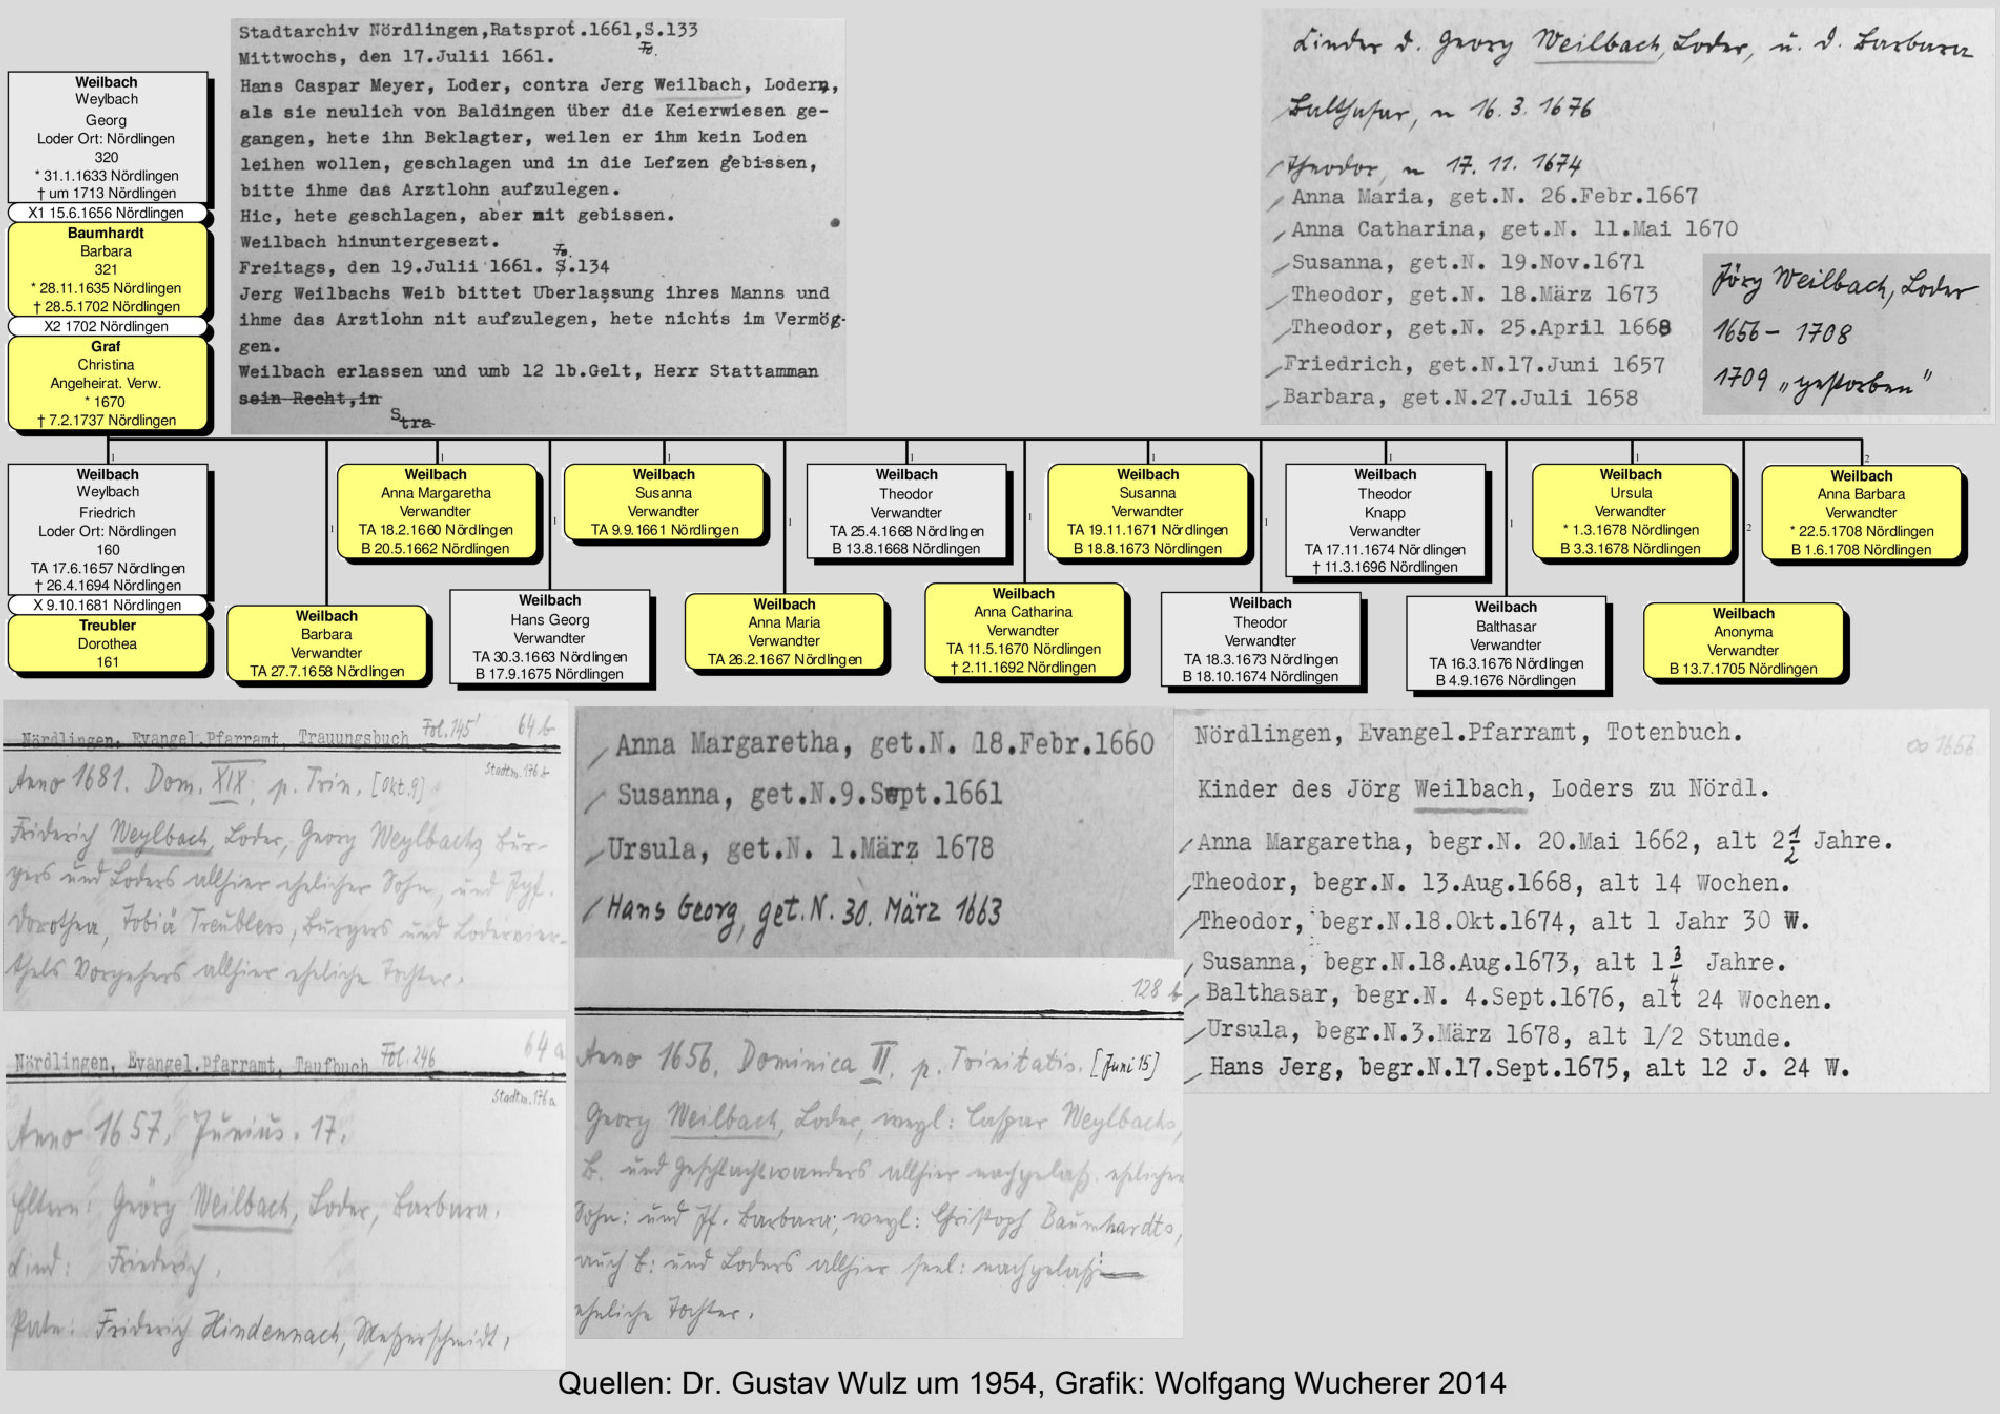 Stadtarchiv Nördlingen,Ratsprot.1661,S.133
Fo.
Mittwochs, den 17.Julii 1661.
Hans Caspar Meyer, Loder, contra Jerg Weilbach, Lodern,
als sie neulich von Baldingen über die Keierwiesen ge-
gangen, hete ihn Beklagter, weilen er ihm kein Loden
leihen wollen, geschlagen und in die Lefzen gebissen,
bitte ihme das Arztlohn aufzulegen.
Hic, hete geschlagen, aber nit gebissen.
Weilbach hinuntergesezt.
Fo.
Freitags, den 19.Julii 1661. S.134
Jerg Weilbachs Weib bittet Uberlassung ihres Manns und
ihme das Arztlohn nit aufzulegen, hete nichts im Vermög-
gen.
Weilbach erlassen und umb 12 lb.Gelt, Herr Stattamman
sein Recht,in
Stra
Kinder d. Georg Weilbach, Loder, u. d. Barbara
Balthasar, ~ 16.3.1676
Theodor, ~ 17.11.1674
Anna Maria, get.N. 26.Febr.1667
Anna Catharina, get.N. 11.Mai 1670
Susanna, get.N. 19.Nov.1671
Theodor, get.N. 18.März 1673
Theodor, get.N. 25.April 1668
Friedrich, get.N.17.Juni 1657
Barbara, get.N.27.Juli 1658
Jörg Weilbach, Loder
1656 – 1708
1709 „gestorben"
Weilbach
Weylbach
Georg
Loder Ort: Nördlingen
320
* 31.1.1633 Nördlingen
† um 1713 Nördlingen
X1 15.6.1656 Nördlingen
Baumhardt
Barbara
321
* 28.11.1635 Nördlingen
† 28.5.1702 Nördlingen
X2 1702 Nördlingen
Graf
Christina
Angeheirat. Verw.
* 1670
† 7.2.1737 Nördlingen
Weilbach
Weylbach
Friedrich
Loder Ort: Nördlingen
160
TA 17.6.1657 Nördlingen
† 26.4.1694 Nördlingen
X 9.10.1681 Nördlingen
Treubler
Dorothea
161
Weilbach
Barbara
Verwandter
TA 27.7.1658 Nördlingen
Weilbach
Anna Margaretha
Verwandter
TA 18.2.1660 Nördlingen
B 20.5.1662 Nördlingen
Weilbach
Hans Georg
Verwandter
TA 30.3.1663 Nördlingen
B 17.9.1675 Nördlingen
Weilbach
Susanna
Verwandter
TA 9.9.1661 Nördlingen
Weilbach
Anna Maria
Verwandter
TA 26.2.1667 Nördlingen
Weilbach
Theodor
Verwandter
TA 25.4.1668 Nördlingen
B 13.8.1668 Nördlingen
Weilbach
Anna Catharina
Verwandter
TA 11.5.1670 Nördlingen
† 2.11.1692 Nördlingen
Weilbach
Susanna
Verwandter
TA 19.11.1671 Nördlingen
B 18.8.1673 Nördlingen
Weilbach
Theodor
Verwandter
TA 18.3.1673 Nördlingen
B 18.10.1674 Nördlingen
Weilbach
Theodor
Knapp
Verwandter
TA 17.11.1674 Nördlingen
† 11.3.1696 Nördlingen
Weilbach
Balthasar
Verwandter
TA 16.3.1676 Nördlingen
B 4.9.1676 Nördlingen
Weilbach
Ursula
Verwandter
* 1.3.1678 Nördlingen
B 3.3.1678 Nördlingen
Weilbach
Anonyma
Verwandter
B 13.7.1705 Nördlingen
Weilbach
Anna Barbara
Verwandter
* 22.5.1708 Nördlingen
B 1.6.1708 Nördlingen
Nördlingen, Evangel.Pfarramt, Trauungsbuch Fol.145' 64 b
Stadtm.176 b
Anno 1681. Dom. XIX. p. Trin. [Okt.9]
Friderich Weylbach, Loder, Georg Weylbachs Bur-
gers und Loders allhier ehelicher Sohn, und Jgf.
Dorothea, Tobiä Treublers, Burgers und Lodervier-
thels Vorgehers allhier eheliche Tochter.
Nördlingen, Evangel.Pfarramt, Taufbuch Fol.246 64 a
Stadtm.176a
Anno 1657. Junius. 17.
Eltern: Georg Weilbach, Loder, Barbara.
Kind: Friederich.
Pate: Friderich Hindennach, Messerschmidt.
Anna Margaretha, get.N. 18.Febr.1660
Susanna, get.N.9.Sept.1661
Ursula, get.N. 1.März 1678
Hans Georg, get.N. 30. März 1663
128 b
Anno 1656. Dominica II. p. Trinitatis. [Juni 15]
Georg Weilbach, Loder, weyl: Caspar Weylbachs,
B. und Geschlachtwanders allhier nachgelaß. ehelicher
Sohn: und Jf. Barbara, weyl: Christoph Baumhardts,
auch B: und Loders allhier seel: nachgelaß:
eheliche Tochter.
Nördlingen, Evangel.Pfarramt, Totenbuch.
∞ 1656
Kinder des Jörg Weilbach, Loders zu Nördl.
Anna Margaretha, begr.N. 20.Mai 1662, alt 2½ Jahre.
Theodor, begr.N. 13.Aug.1668, alt 14 Wochen.
Theodor, begr.N.18.Okt.1674, alt 1 Jahr 30 W.
Susanna, begr.N.18.Aug.1673, alt 1¾ Jahre.
Balthasar, begr.N. 4.Sept.1676, alt 24 Wochen.
Ursula, begr.N.3.März 1678, alt 1/2 Stunde.
Hans Jerg, begr.N.17.Sept.1675, alt 12 J. 24 W.
Quellen: Dr. Gustav Wulz um 1954, Grafik: Wolfgang Wucherer 2014